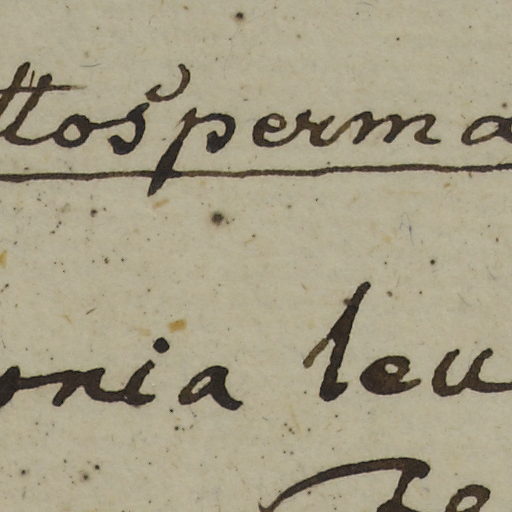 ttosperma
onia leu